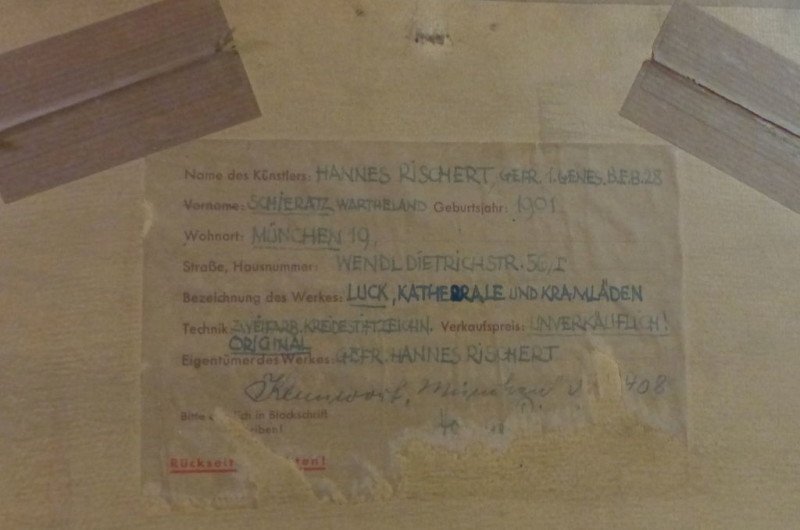 Name des Künstlers: HANNES RISCHERT GEFR. 1. GENES. B.E.B. 28
Vorname: SCHIERATZ WARTHELAND Geburtsjahr: 1901
Wohnort: MÜNCHEN 19,
Straße, Hausnummer: WENDL DIETRICHSTR. 56/I
Bezeichnung des Werkes: LUCK, KATHEDRALE UND KRAMLÄDEN
Technik ZWEIFARB. KREIDESTIFTZEICHN. Verkaufspreis: UNVERKÄUFLICH!
ORIGINAL
Eigentümer des Werkes: GEFR. HANNES RISCHERT
Kennwort, München 408
Bitte in Blockschrift
Rückseit